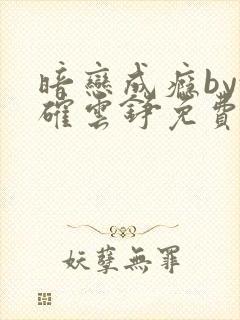 暗戀成癮by
確雲錚免費
妖孽無罪